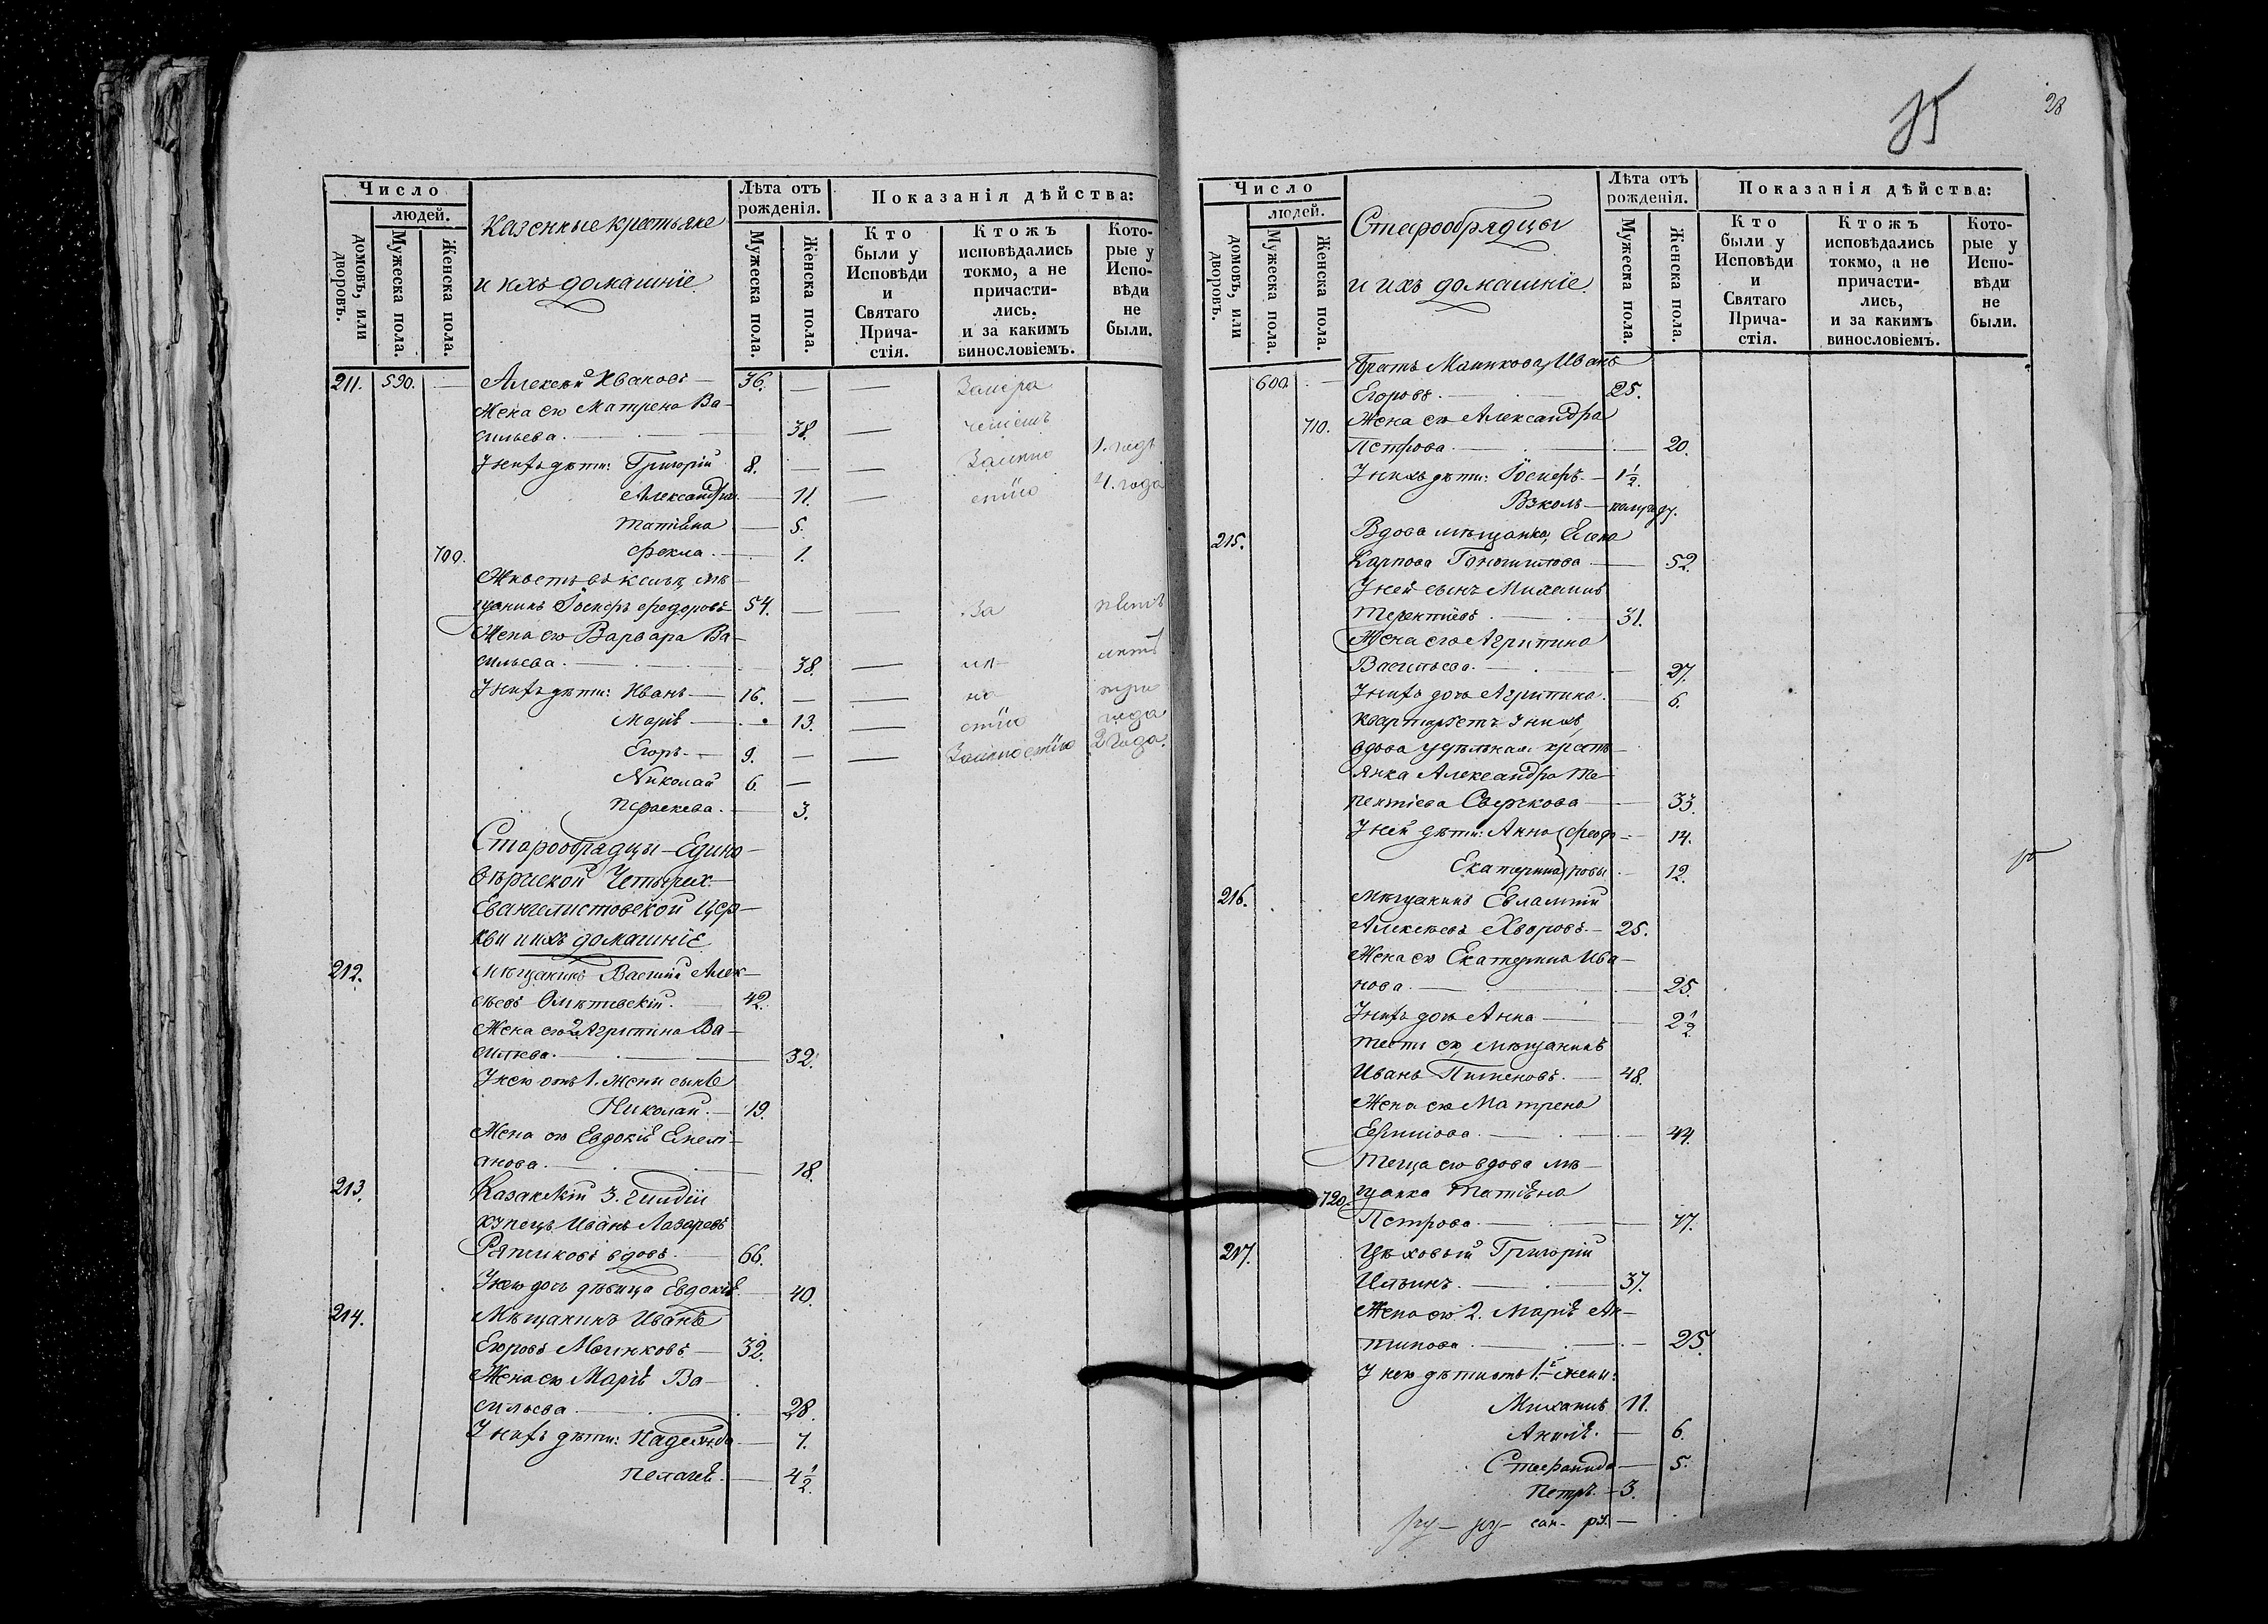 Число
людей.
домовъ, или дворовъ.
Мужеска пола.
Женска пола.
Казенные крестьяне
и ихъ домашніе.
Лѣта отъ рожденія.
Мужеска пола.
Женска пола.
Показанія дѣйства:
Кто были у Исповѣди и Святаго Прича-стія.
Ктожъ исповѣдались токмо, а не причасти-лись, и за какимъ винословіемъ.
Кото-рые у Испо-вѣди не были.
211. 590. — Алексѣй Ивановъ — 36. — —
Жена его Матрена Ва-
сильева. — 38. —
У нихъ дѣти: Григорій 8. — — 1. годъ
Александра — 11. — стію 4. года
Татіана — 5.
700. Фекла. — 1.
Жительствуетъ, мѣ-
щанинъ Іосифъ Федоровъ 54. — — За
Жена его Варвара Ва-
сильева. — 38. — ма- лѣтъ
У нихъ дѣти: Иванъ — 16. — — ло три
Марія — 13. — стію года
Егоръ. — 9. — — Замалостію 2 года.
Николай 6. —
Параскева. — 3.
Старообрядцы — Едино-
вѣрческой Четырех-
Евангелистовской цер-
кви и ихъ домашніе
212. Мѣщанинъ Василій Алек-
сѣевъ 42.
Жена его 2 Агрипина Ва-
сильева. — 32.
У него отъ 1. жены сынъ
Николай. — 19.
Жена его Евдокія Емелі-
анова. — 18.
213. Казанскій 3. гильдіи
купецъ Иванъ Лазаревъ
Ряпиковъ вдовъ. 66.
У него дочь дѣвица Евдокія. 40.
214. Мѣщанинъ Иванъ
Егоровъ Маинковъ — 32.
Жена его Марія Ва-
сильева — 28.
У нихъ дѣти: Надежда — 7.
Пелагея. — 4 1/2.
35
28
Число
людей.
домовъ, или дворовъ.
Мужеска пола.
Женска пола.
Старообрядцы
и ихъ домашніе.
Лѣта отъ рожденія.
Мужеска пола.
Женска пола.
Показанія дѣйства:
Кто были у Исповѣди и Святаго Прича-стія.
Ктожъ исповѣдались токмо, а не причасти-лись, и за какимъ винословіемъ.
Кото-рые у Испо-вѣди не были.
600. — Братъ Маинкова, Иванъ
Егоровъ. — 25.
710. Жена его Александра
Петрова — 20.
У нихъ дѣти: Іосифъ. — 1 1/2.
— полугоду.
215. Вдова мѣщанка, Елена
Карпова — 52.
У ней сынъ Михаилъ
Терентьевъ — 31.
Жена его Агрипина
Васильева. — 27.
У нихъ дочь Агрипина. 6.
Квартируетъ у нихъ,
вдова удѣльная кресть-
янка Александра Те-
рентіева Сверчкова — 33.
У ней дѣти: Анна Федо- 14.
Екатерина ровы 12.
216. Мѣщанинъ Евлампій
Алексѣевъ Хворовъ. — 25.
Жена его Екатерина Ива-
нова. — 25.
У нихъ дочь Анна — 2 1/2
Тесть его, мѣщанинъ
Иванъ Пименовъ. — 48.
Жена его Матрена
Ермилова. — 44.
Теща его вдова мѣ-
720. щанка Татіана
Петрова. — 77.
217. Цѣховый Григорій
Ильинъ. — 37.
Жена его 2. Марія Ан-
типова. — 25.
У него дѣти отъ 1й жены:
Михаилъ 11.
— 6.
Стефанида — 5.
Петръ. — 3.